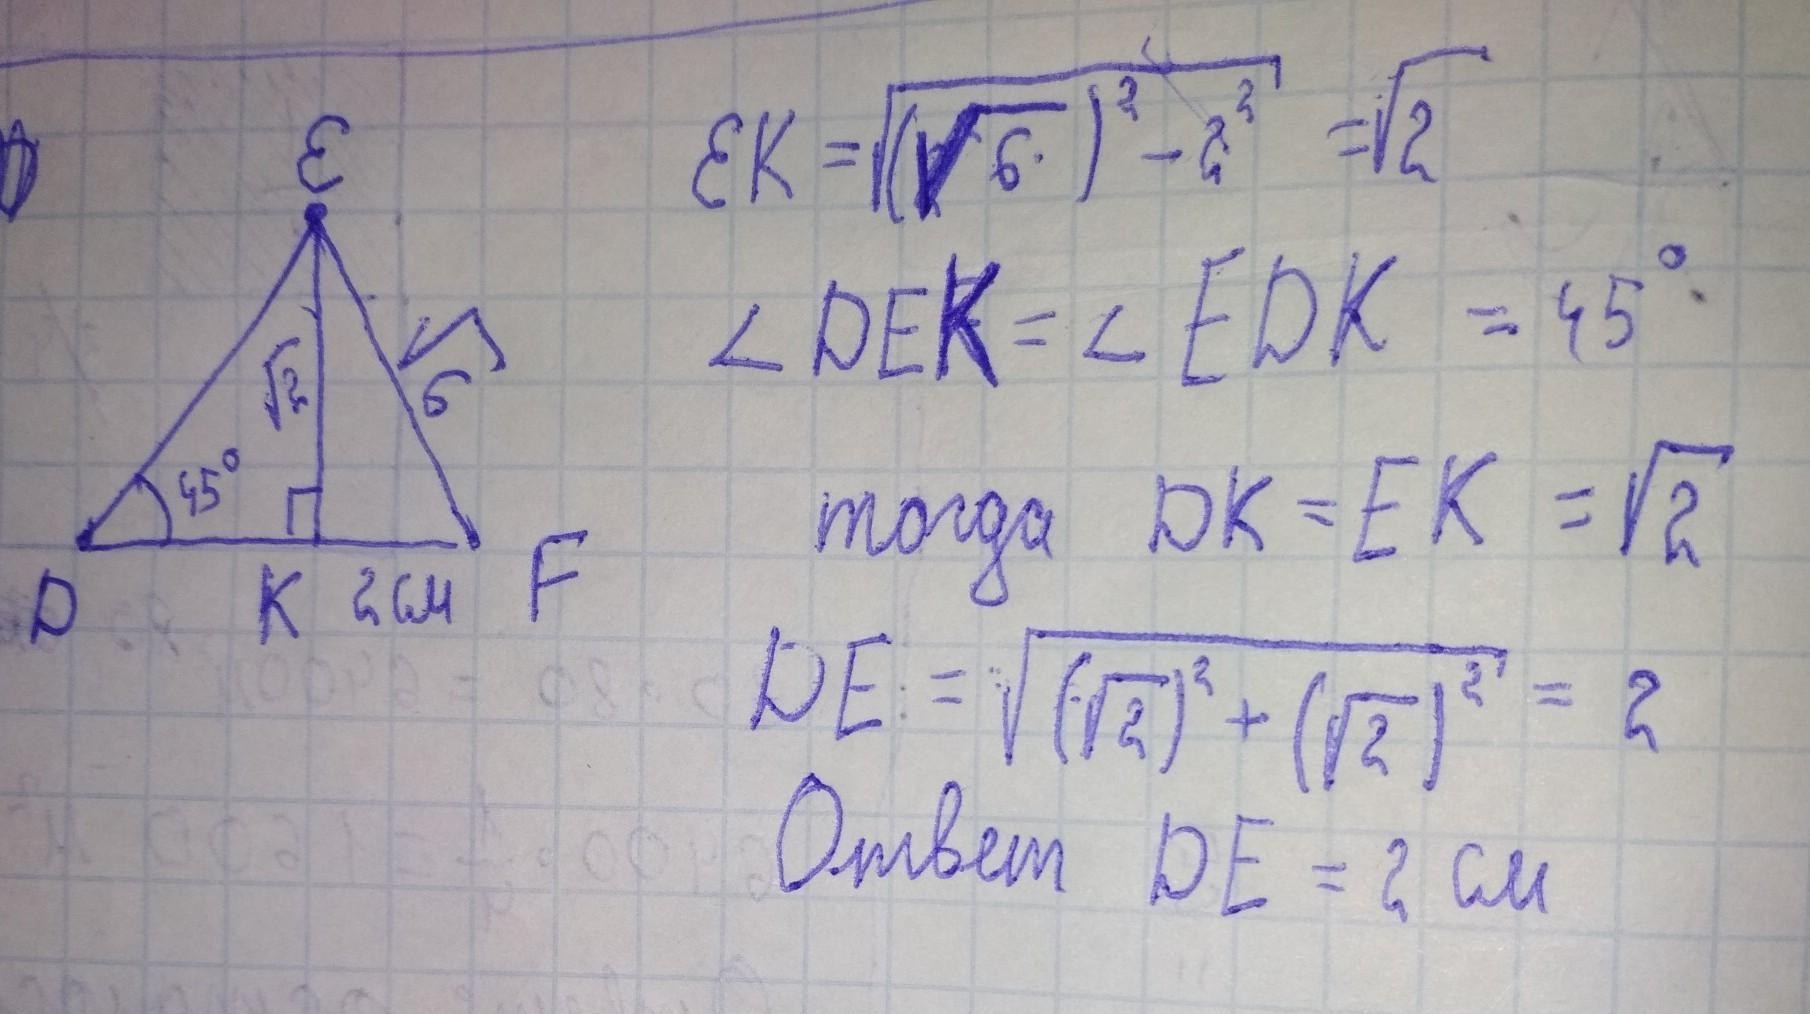 Ɛ
√2
√6
45°
D K 2 см F
ƐK = √((√6)² - 2²) = √2
∠DEK = ∠EDK = 45°
тогда DK = EK = √2
DE = √((√2)² + (√2)²) = 2
Ответ DE = 2 см